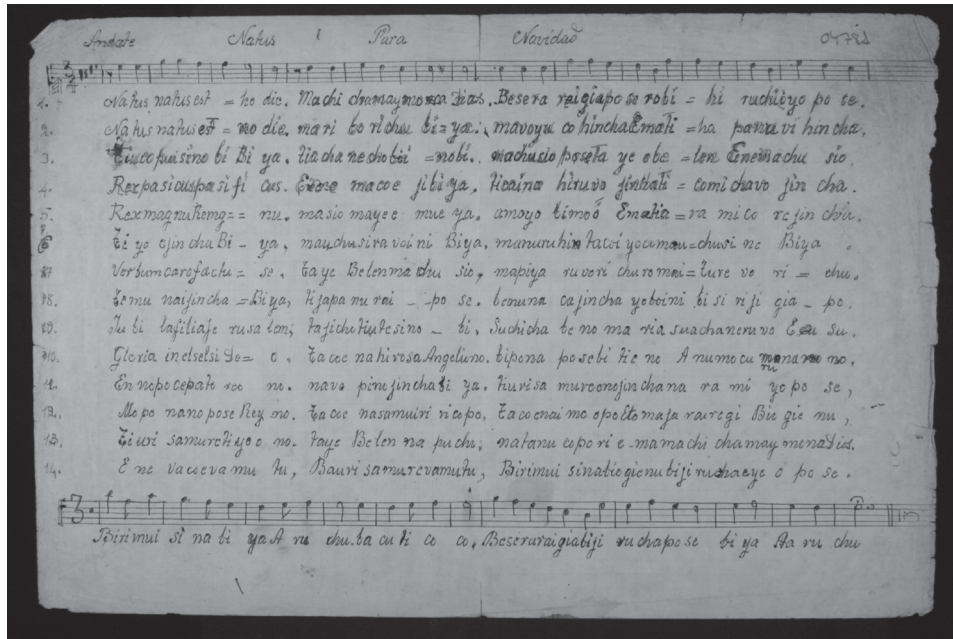 Andate Natus Para Navidad
1. Natus natus est = ho die. Machi chamaymona Dias. Besera raigiapo se robi = hi ruchibyo po se.
2. Natus natus est = ho die. mari bo richu bi = ya. mavoyu co hincha Emati = ha panu vi hin cha.
3. pui sino bi Bi ya. tia cha ne cho boi = nobi. machu sio poseta ye obe = len Enemachu sio.
4. Rex pasi cus pa si fi cus. macoe ji bi ya. ticaina hiruvo jinthati = comi chavo jin cha.
5. Rex magnu Remg = = nu. masio mayee mue ya. amoyo timoo Ematia = ra mi co re jin cha.
6. Ti ye ojin cha Bi - ya, mauchusira voi ni Biya, manuru hin tacoi yocomau = chusi ne Biya.
7. Verbum caro factu = se, Taye Belen machu sio, mapiya ru vori churomoi = ture vo ri = chu.
8. Temu naijincha = Biya, ti japa nu rai - po se. benuna cajincha yeboini bi si ri ji gia - po.
9. Tu bi lafiliaje rusa len; tajicho tiutesino - bi, Suchicha be no ma ria suachaneruvo E su.
10. Gloria inelselsi De = o, Tacoe nahirosa Angeluno. bipona posebi tie no Anumocu no.
11. En nopocepato reo no. navo pinojincha bi ya. tiurisa mureonojinchana ra mi yo po se,
12. Mopo nano pose Rey no. Tacoe nasamuiri ricepo, Tacoenaimo opoeto maja rairegi Bie gie nu,
13. Tiuri samuretiyoe no. taye Belen na puchi; natanu copo ri e - mamachi chamay mona Dios.
14. E ne vacoeva mu tu, Bauri samurevamutu, Birimui sinatiegienubiji ruchaeye o po se.
Birimui si na bi ya A ru chu. ta cu ti co co. Beseraraigiabiji ruchapose bi ya Aa ru chu